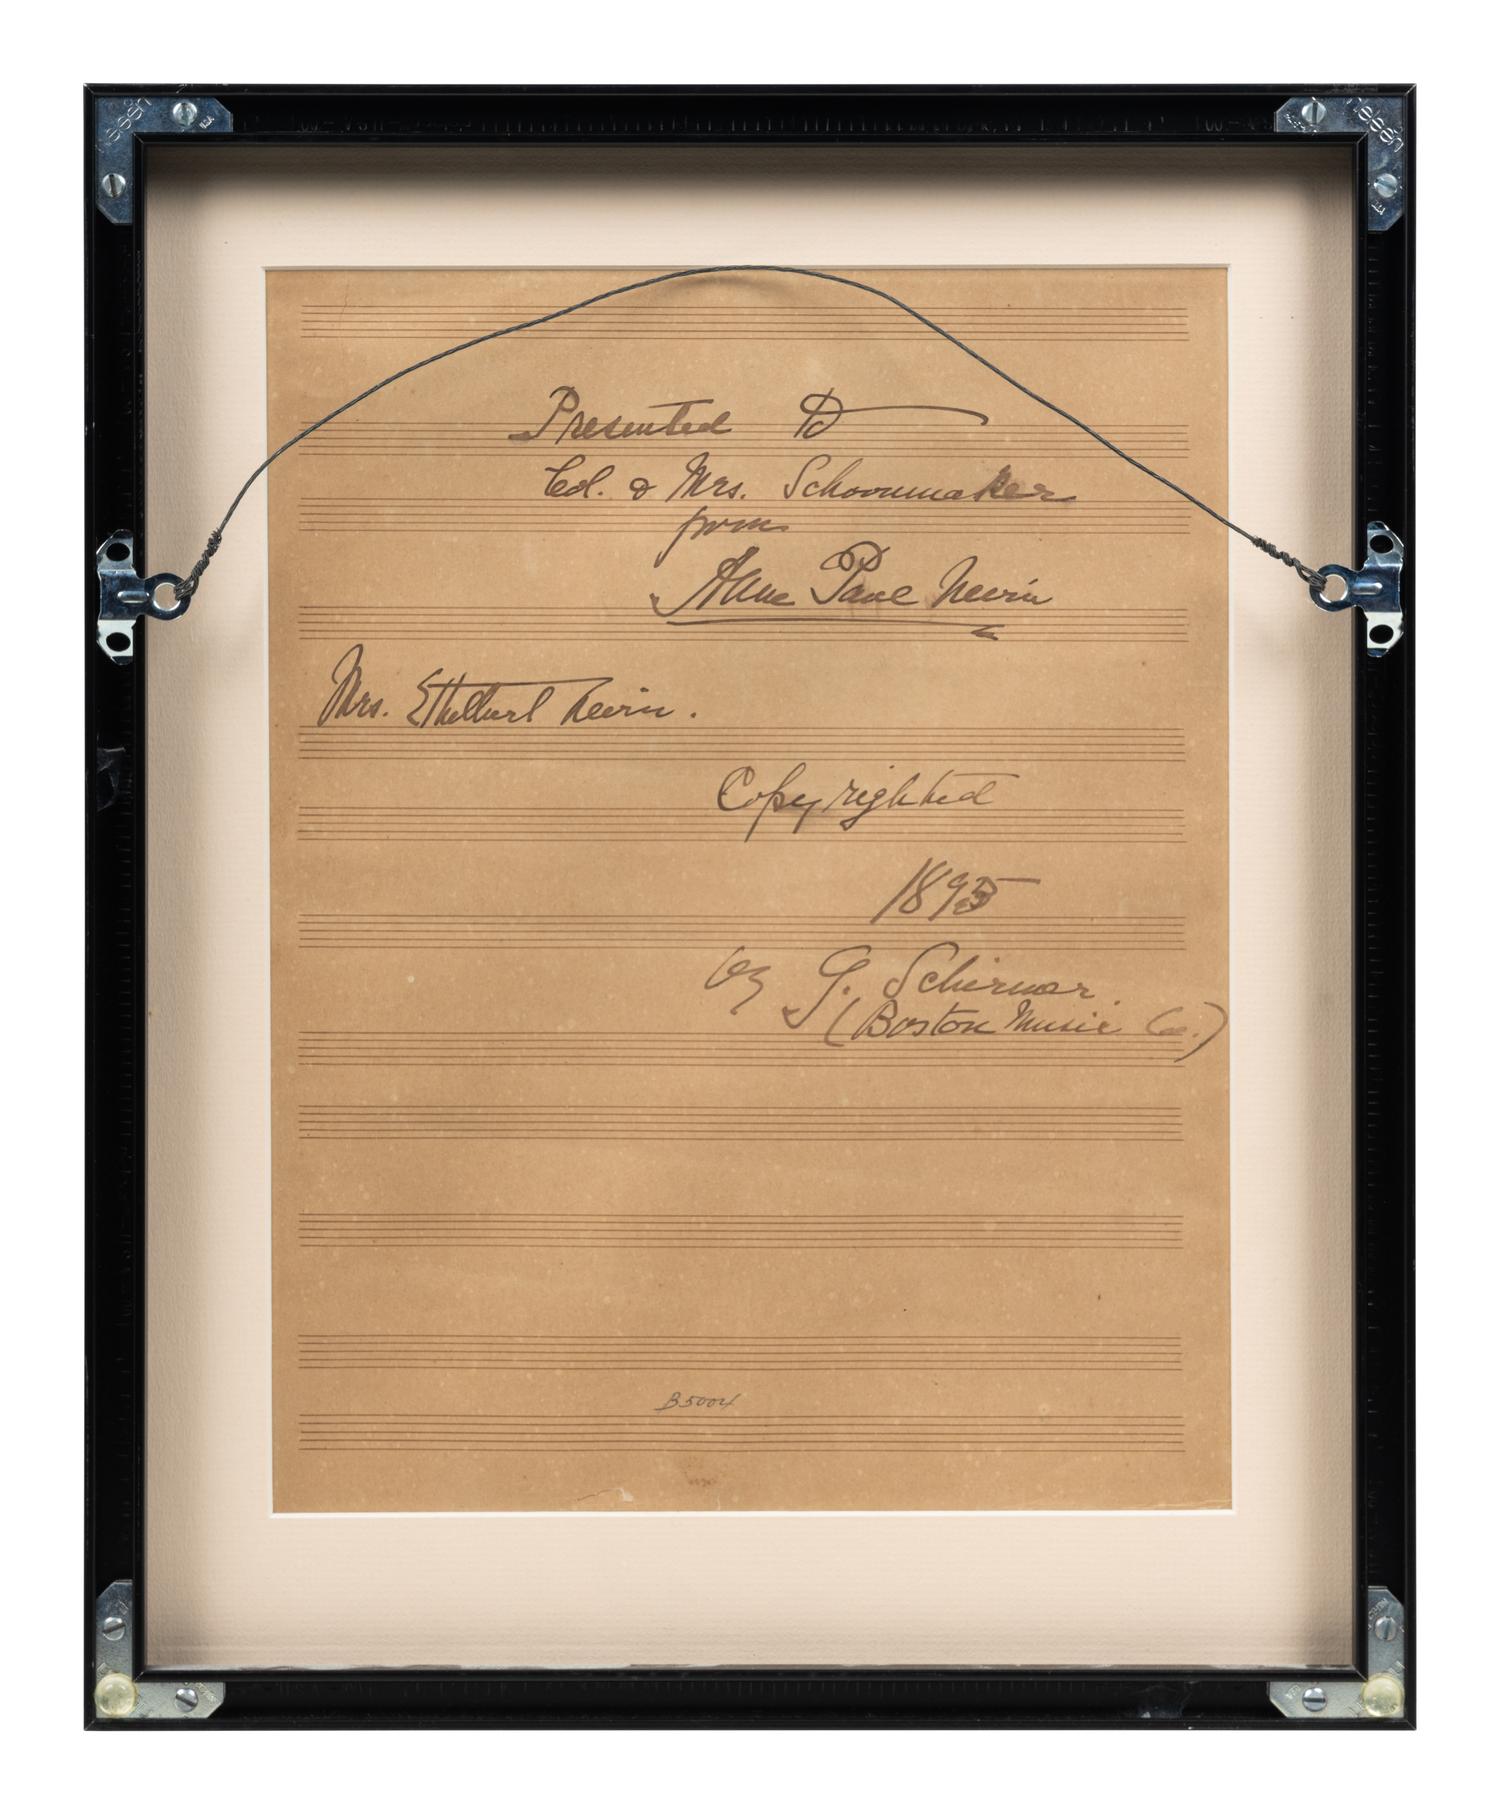 Presented to
Col. & Mrs. Schoonmaker
from
Anne Paul Nevin
Mrs. Ethelbert Nevin.
Copyrighted
1895
by G. Schirmer
(Boston Music Co.)
B5004